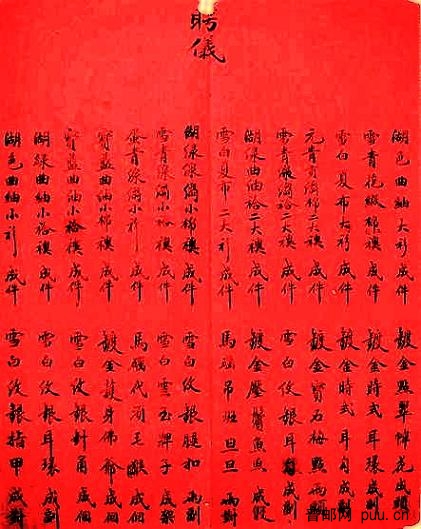 聘儀
湖色曲紬大衫成件
雪青花縐棉襖成件
雪白夏布大衫成件
元青 綢棉二大襖
雪青 縐袷二大襖成件
湖绿曲紬袷二大襖成件
雪白夏布二大衫成件
湖绿綫縐小棉襖成件
雪青綫縐小棉襖成件
蛋青綫縐小衫成件
寶藍曲紬小棉襖成件
寶藍曲紬小袷襖成件
湖緑曲紬小袷襖成件
湖色曲紬小衫成件
鍍金點翠 花成
鍍金時式耳環成
鍍金時式耳 成
鍍金寶石梅點兩
雪白紋銀耳 成副
鍍金壓鬢魚 成
馬瑙吊 旦旦兩對
雪白紋銀腿扣 副
雪白雲玉牌子成
馬瑙代洞玉猴成個
鍍金護身佛爺成個
雪白紋銀針角成個
雪白紋銀耳環成副
雪白紋銀指甲成對
puu.cn